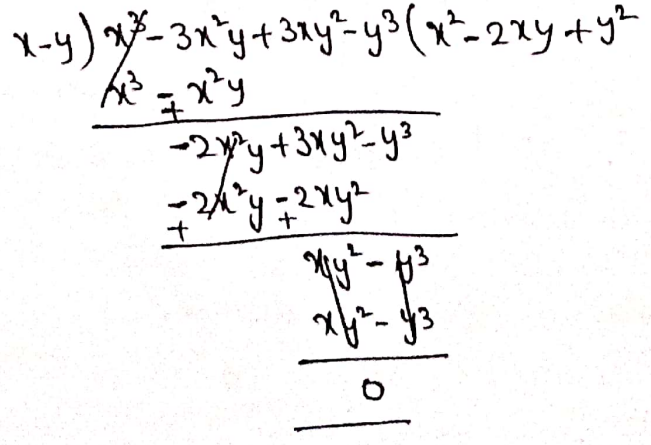 x-y) x³- 3x²y + 3xy²- y³ ( x²- 2xy + y²
x³ - x²y
+
-2x²y + 3xy²- y³
-2x²y - 2xy²
+ +
xy² - y³
xy² - y³
0